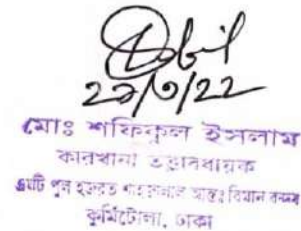 ২১/৩/২২
মোঃ শফিকুল ইসলাম
কারখানা তত্ত্বাবধায়ক
এমটি পুল হযরত শাহজালাল আন্তঃ বিমান বন্দর
কুর্মিটোলা, ঢাকা